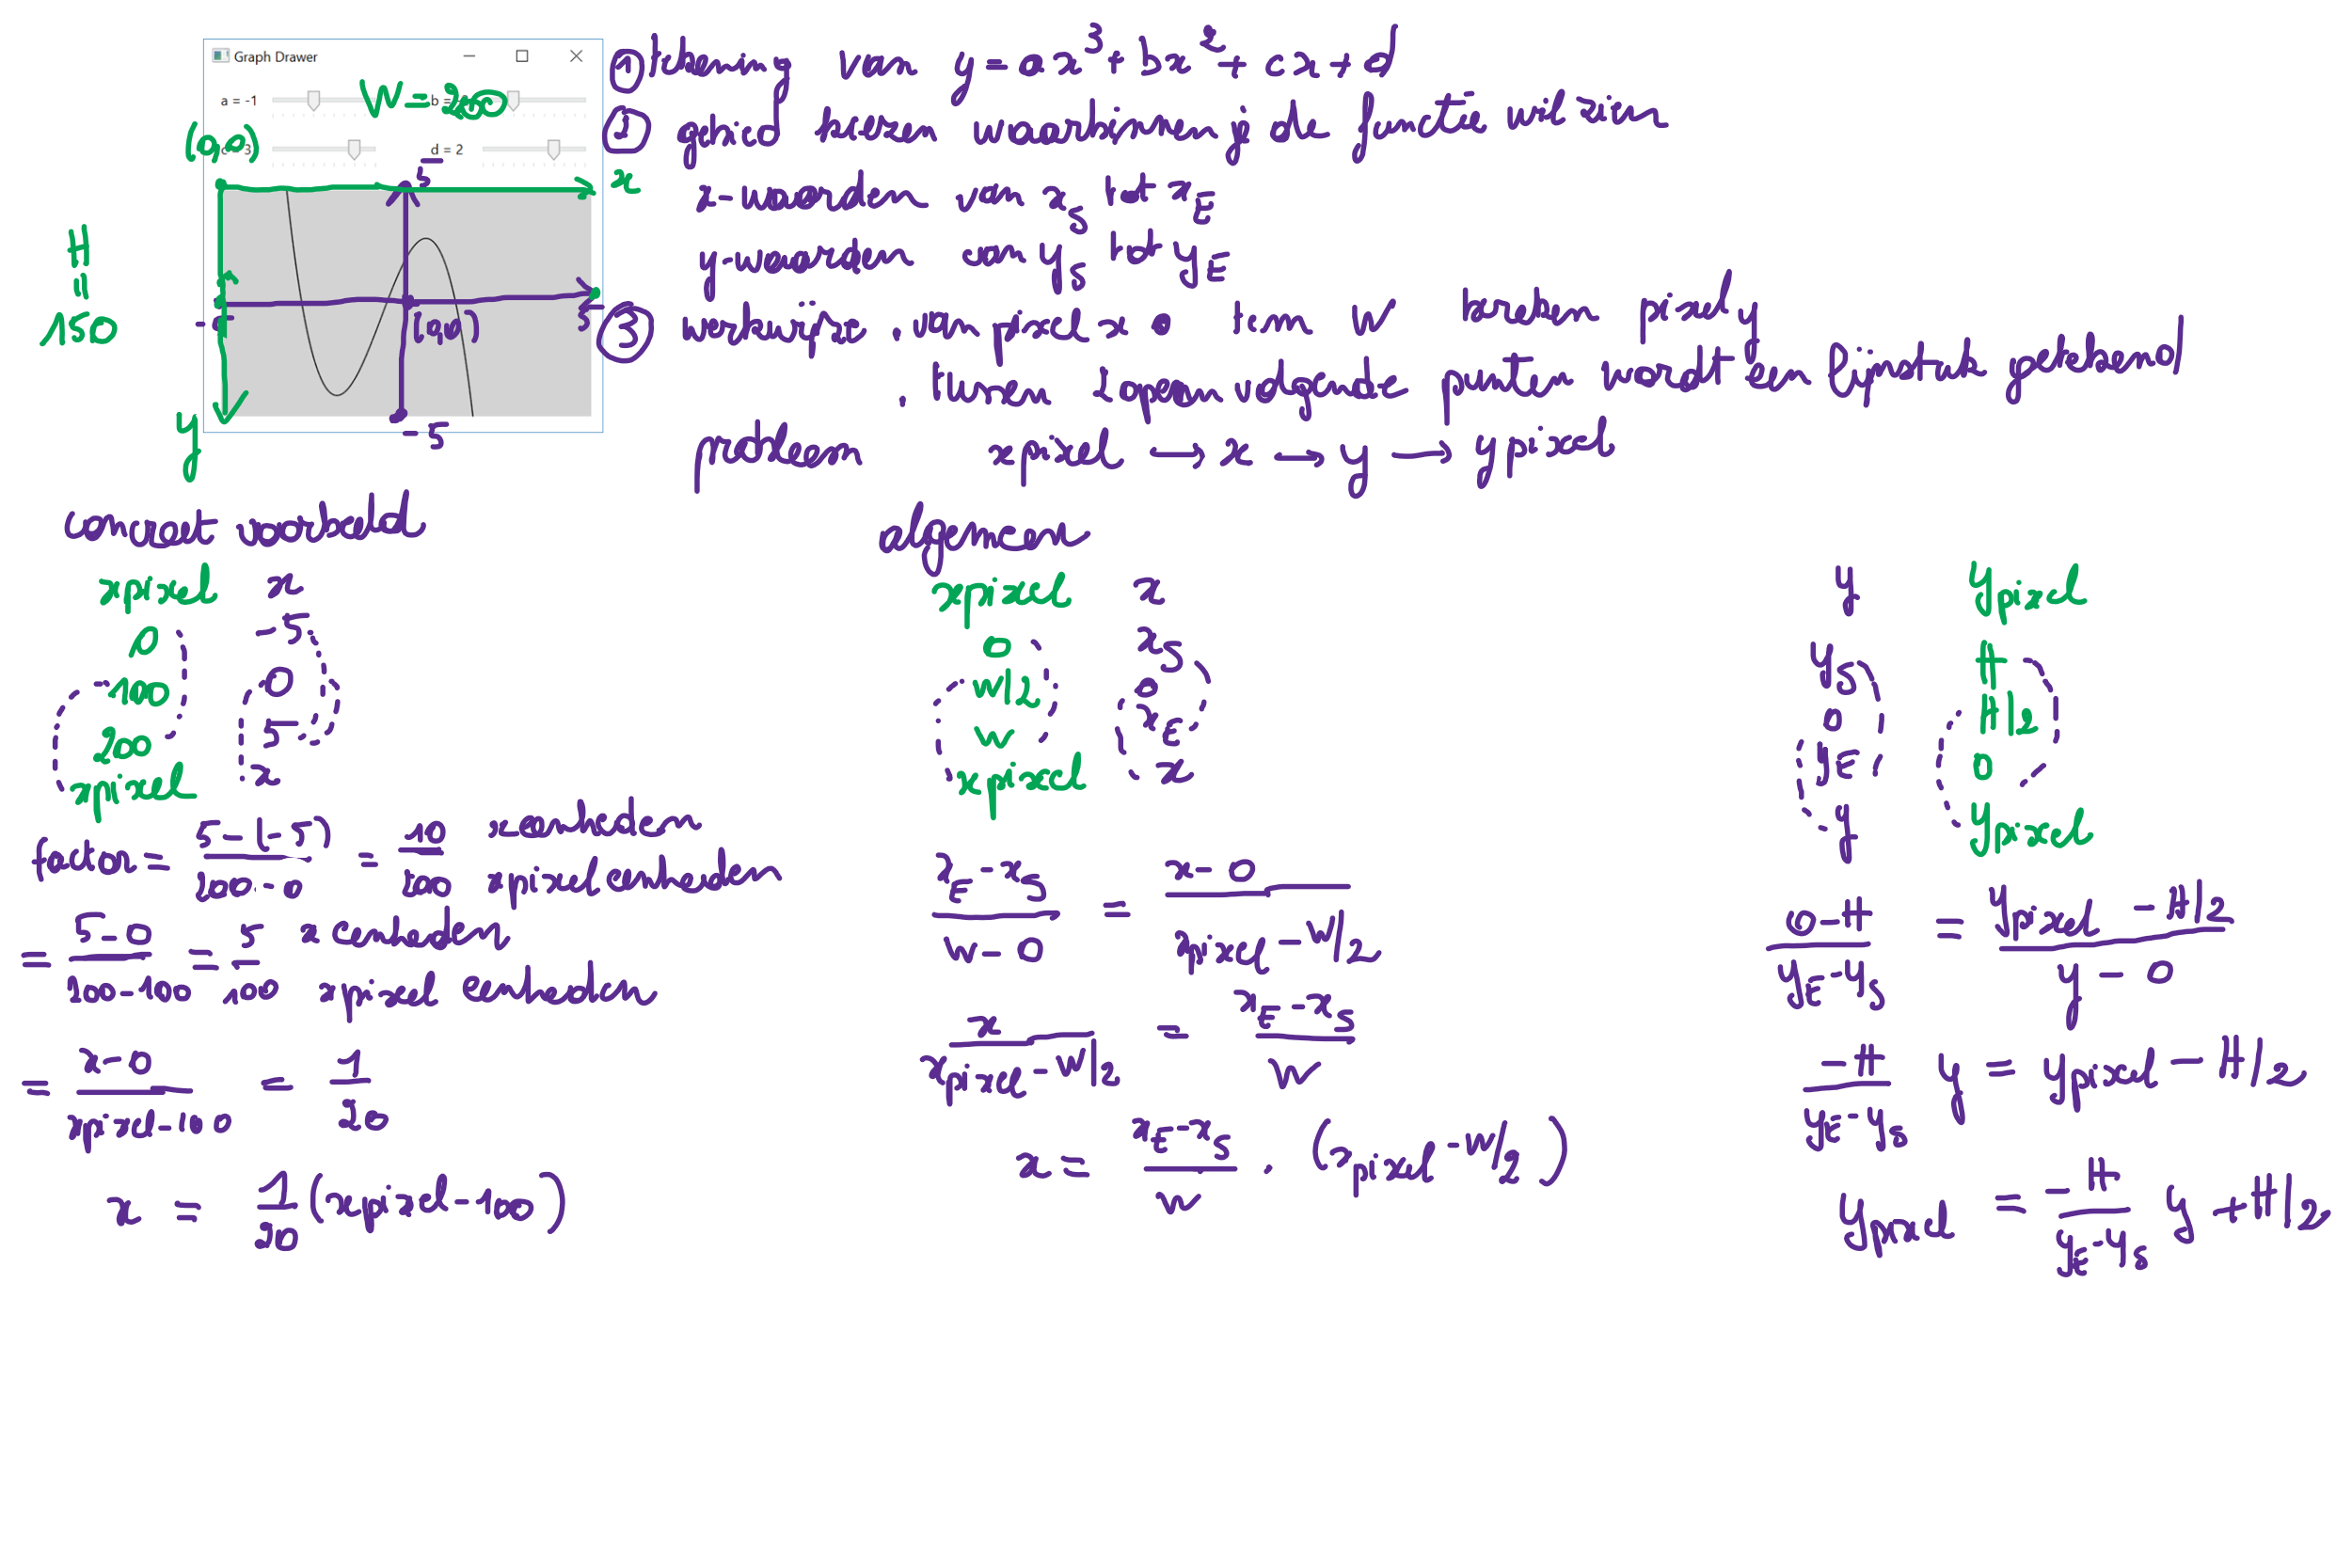 Graph Drawer
a = -1
W = 200
(0,0)
3
d = 2
x
5
H = 150
(0,0)
5
-5
y
① tekening van y = ax³ + bx² + cx + d
② gebied kiezen waarbinnen je de functie wil zien
x-waarden van x_S tot x_E
y-waarden van y_S tot y_E
③ werkwijze . van pixel x 0 tem W bereken pixel y
. tussen 2 opeenvolgende punten wordt een lijnstuk getekend
probleem xpixel → x → y → ypixel
concreet voorbeeld
xpixel x
0 -5
100 0
200 5
xpixel x
factor = (5-(-5))/(200-0) = 10/200 xeenheden / xpixeleenheden
= (5-0)/(200-100) = 5/100 x eenheden / xpixel eenheden
= (x-0)/(xpixel-100) = 1/20
x = 1/20 (xpixel-100)
algemeen
xpixel x
0 x_S
W/2 0
W x_E
xpixel x
(x_E - x_S)/(W - 0) = (x - 0)/(xpixel - W/2)
x/(xpixel - W/2) = (x_E - x_S)/W
x = (x_E - x_S)/W . (xpixel - W/2)
y ypixel
y_S H
0 H/2
y_E 0
y ypixel
(0 - H)/(y_E - y_S) = (ypixel - H/2)/(y - 0)
-H/(y_E - y_S) y = ypixel - H/2
ypixel = -H/(y_E - y_S) y + H/2